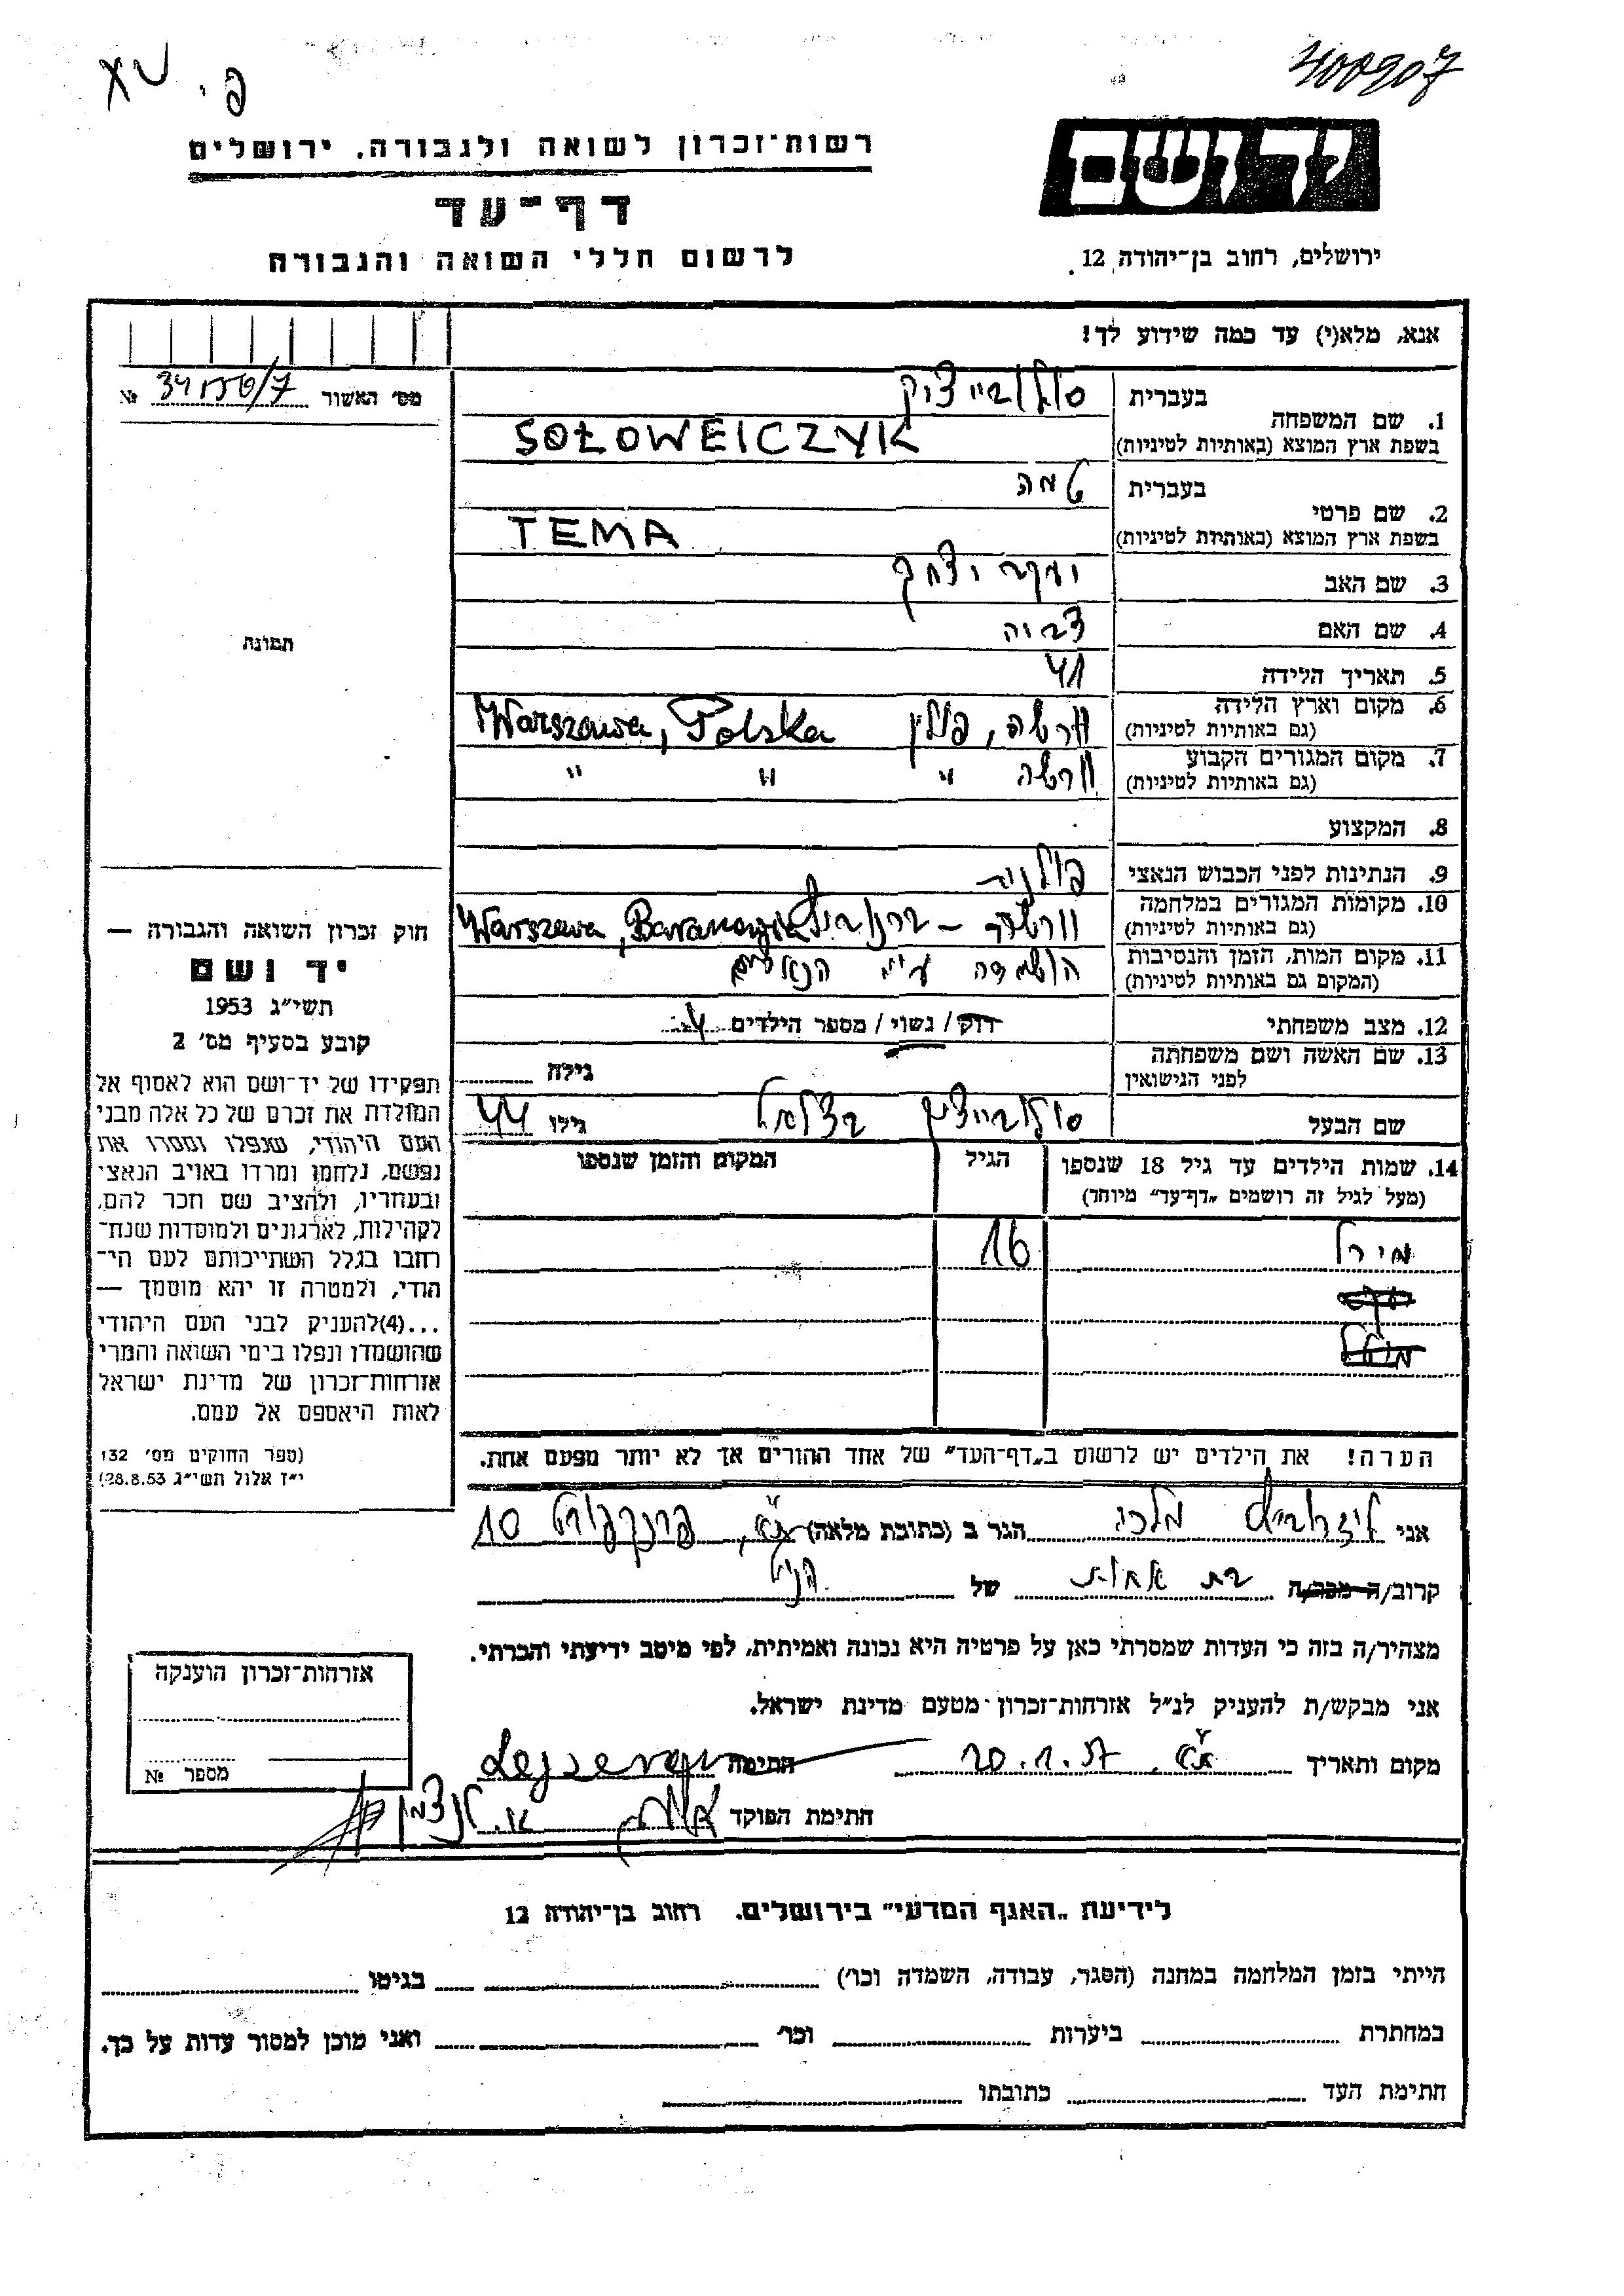 פ. י. XV
400907
רשות־זכרון לשואה ולגבורה, ירושלים
דף־עד
לרשום חללי השואה והגבורה
יד ושם
ירושלים, רחוב בן־יהודה 12.
אנא, מלא(י) עד כמה שידוע לך!
מס' האשור №
1. שם המשפחה בעברית סולובייציק
בשפת ארץ המוצא (באותיות לטיניות) SOŁOWEICZYK
2. שם פרטי בעברית טמה
בשפת ארץ המוצא (באותיות לטיניות) TEMA
3. שם האב יעקב יצחק
4. שם האם צביה
5. תאריך הלידה 41
6. מקום וארץ הלידה (גם באותיות לטיניות) וורשה, פולין Warszawa, Polska
7. מקום המגורים הקבוע (גם באותיות לטיניות) וורשה " " "
8. המקצוע
9. הנתינות לפני הכבוש הנאצי פולנית
10. מקומות המגורים במלחמה (גם באותיות לטיניות) Warszawa,
11. מקום המות, הזמן והנסיבות (המקום גם באותיות לטיניות) הושמדה ע"י הנאצים
12. מצב משפחתי רוק / נשוי / מספר הילדים 4
13. שם האשה ושם משפחתה לפני הנישואין גילה
שם הבעל סולובייציק בצלאל גילו 44
14. שמות הילדים עד גיל 18 שנספו (מעל לגיל זה רושמים „דף־עד" מיוחד) הגיל המקום והזמן שנספו
מירל 16
תמונה
חוק זכרון השואה והגבורה —
יד ושם
תשי"ג 1953
קובע בסעיף מס' 2
תפקידו של יד־ושם הוא לאסוף אל
המולדת את זכרם של כל אלה מבני
העם היהודי, שנפלו ומסרו את
נפשם, נלחמו ומרדו באויב הנאצי
ובעוזריו, ולהציב שם וזכר להם,
לקהילות, לארגונים ולמוסדות שנח־
רבו בגלל השתייכותם לעם הי־
הודי, ולמטרה זו יהא מוסמך —
...(4)להעניק לבני העם היהודי
שהושמדו ונפלו בימי השואה והמרי
אזרחות־זכרון של מדינת ישראל
לאות היאספם אל עמם.
(ספר החוקים מס' 132
י"ז אלול תשי"ג 28.8.53)
הערה! את הילדים יש לרשום ב„דף־העד" של אחד ההורים אך לא יותר מפעם אחת.
אני מלכי הגר ב (כתובת מלאה) ת"א, פרנקפורט 10
קרוב/ה מכר/ה בת אחות של הנ"ל
מצהיר/ה בזה כי העדות שמסרתי כאן על פרטיה היא נכונה ואמיתית, לפי מיטב ידיעתי והכרתי.
אני מבקש/ת להעניק לנ"ל אזרחות־זכרון מטעם מדינת ישראל.
מקום ותאריך ת"א. 20.1.57 חתימה
חתימת הפוקד
אזרחות־זכרון הוענקה
מספר №
לידיעת „האגף המדעי" בירושלים. רחוב בן־יהודה 12
הייתי בזמן המלחמה במחנה (הסגר, עבודה, השמדה וכו') בגיטו
במחתרת ביערות וכו' ואני מוכן למסור עדות על כך.
חתימת העד כתובתו